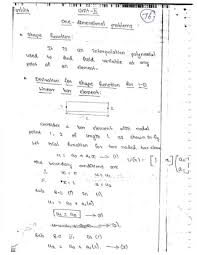 UNIT-II
76
One dimensional problems:
* Shape Function:
It is an Interpolation polynomial
used to find field variable at any
part of an element.
* Derivation for shape function for 1-D
linear bar element:
Consider a bar element with nodal
point 1, 2 of length l as shown in fig
Let trial function for two noded bar element
u = a₀ + a₁x → (1)
the boundary conditions are
1. x = 0 u = u₁
2. x = l u = u₂
Sub
in (1)
u₁ = a₀ + a₁(0)
u₁ = a₀ → (2)
Sub in (1)
u₂ = a₀ + a₁(l)